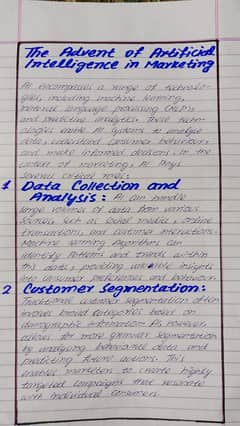 The Advent of Artificial
Intelligence in Marketing
AI encompasses a range of technolo-
gies, including machine learning,
natural language processing (NLP),
and predictive analytics. These tech-
nologies enable AI systems to analyze
data, understand consumer behaviour,
and make informed decisions. In the
context of marketing, AI plays
several critical roles:
1 Data Collection and
Analysis: AI can handle
large volumes of data from various
sources, such as social media, online
transactions, and customer interactions.
Machine learning algorithms can
identify patterns and trends within
this data, providing valuable insights
into consumer preferences and behaviour.
2 Customer Segmentation:
Traditional customer segmentation often
involves broad categories based on
demographic information. AI, however,
allows for more granular segmentation
by analyzing behavioural data and
predicting future actions. This
enables marketers to create highly
targeted campaigns that resonate
with individual consumers.